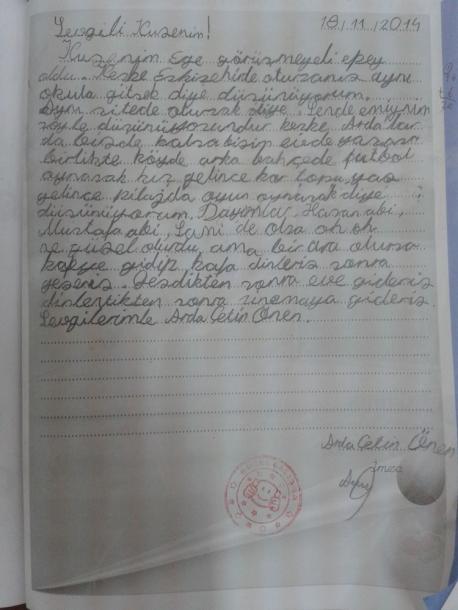 Sevgili Kuzenim! 18/11/2014
Kuzenim Ege görüşmeyeli epey
oldu. Keşke Eskişehirde otursanız aynı
okula gitsek diye düşünüyorum.
Aynı sitede otursak diye. Sende eminim
şöyle düşünüyosundur keşke Arda'lar
da bizde kalsa bizim evde yaşasa
birlikte köyde arka bahçede futbol
oynasak kış gelince kar topu, yaz
gelince pilajda oyun oynasak diye
düşünüyorum. Dayımlar, Hasan abi,
Mustafa abi, Sami de olsa oh oh
ne güzel olurdu, ama bir ara olursa
köyye gidip kafa dinleriz sonra
gezeriz. Gezdikten sonra eve gideriz
dinlentikten sonra sinemaya gideriz.
Sevgilerimle Arda Çetin Önen.
Arda Çetin Önen
imza